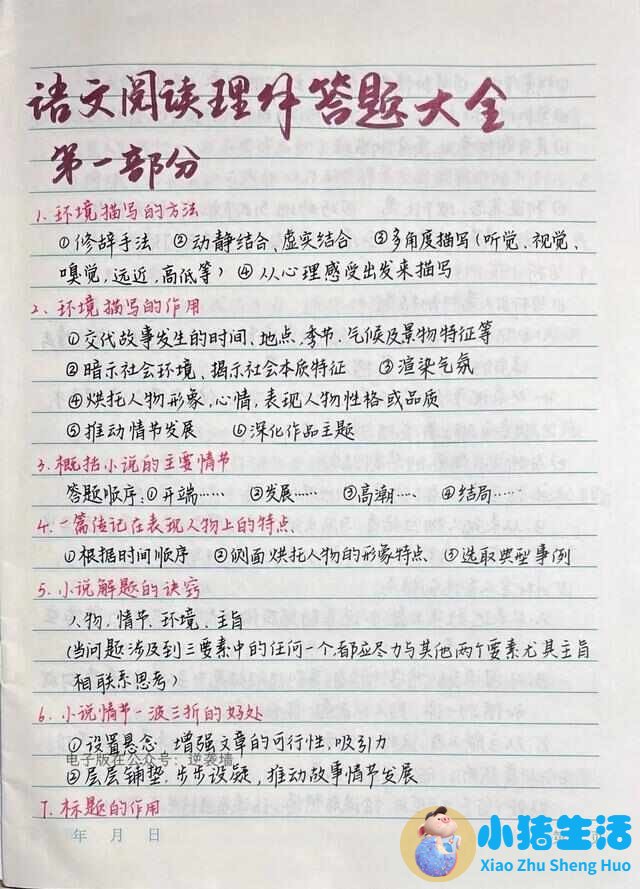 语文阅读理解答题大全
第一部分
1.环境描写的方法
①修辞手法 ②动静结合、虚实结合 ③多角度描写(听觉、视觉、
嗅觉,远近,高低等) ④从心理感受出发来描写
2.环境描写的作用
①交代故事发生的时间、地点、季节、气候及景物特征等
②暗示社会环境,揭示社会本质特征 ③渲染气氛
④烘托人物形象,心情,表现人物性格或品质
⑤推动情节发展 ⑥深化作品主题
3.概括小说的主要情节
答题顺序:①开端…… ②发展…… ③高潮…… ④结局……
4.一篇传记在表现人物上的特点
①根据时间顺序 ②侧面烘托人物的形象特点 ③选取典型事例
5.小说解题的诀窍
人物,情节、环境、主旨
(当问题涉及到三要素中的任何一个,都应尽力与其他两个要素尤其主旨
相联系思考)
6.小说情节一波三折的好处
①设置悬念,增强文章的可行性,吸引力
电子版在公众号:逆袭墙
②层层铺垫,步步设疑,推动故事情节发展
7.标题的作用
年 月 日
小猪生活
Xiao Zhu Sheng Huo